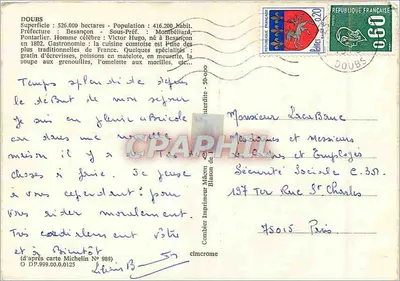 DOUBS
Superficie : 526.000 hectares - Population : 416.200 habit.
Préfecture : Besançon - Sous-Préf. : Montbéliard,
Pontarlier. Homme célèbre : Victor Hugo, né à Besançon
en 1802. Gastronomie : la cuisine comtoise est l'une des
plus traditionnelles de France. Quelques spécialités :
gratin d'écrevisses, poissons en matelote, en meurette, la
soupe aux grenouilles, l'omelette aux morilles, etc...
0,20
RÉPUBLIQUE FRANÇAISE
0,60
DOUBS
Temps splendide depuis
le début de mon séjour
Je suis en pleine Bricole
car dans une nouvelle
maison il y a
choses à faire. Je pense
à vous cependant pour
vous aider moralement.
Très cordialement votre
et à Bientôt
Monsieur
Mesdames et Messieurs
et Employés
Sécurité Sociale
137 Ter Rue St Charles
75015 Paris
CARPHIL
Combier Imprimeur Mâcon
interdite - 50-000
cimcrome
(d'après carte Michelin N° 989)
O DP.999.00.0.0125